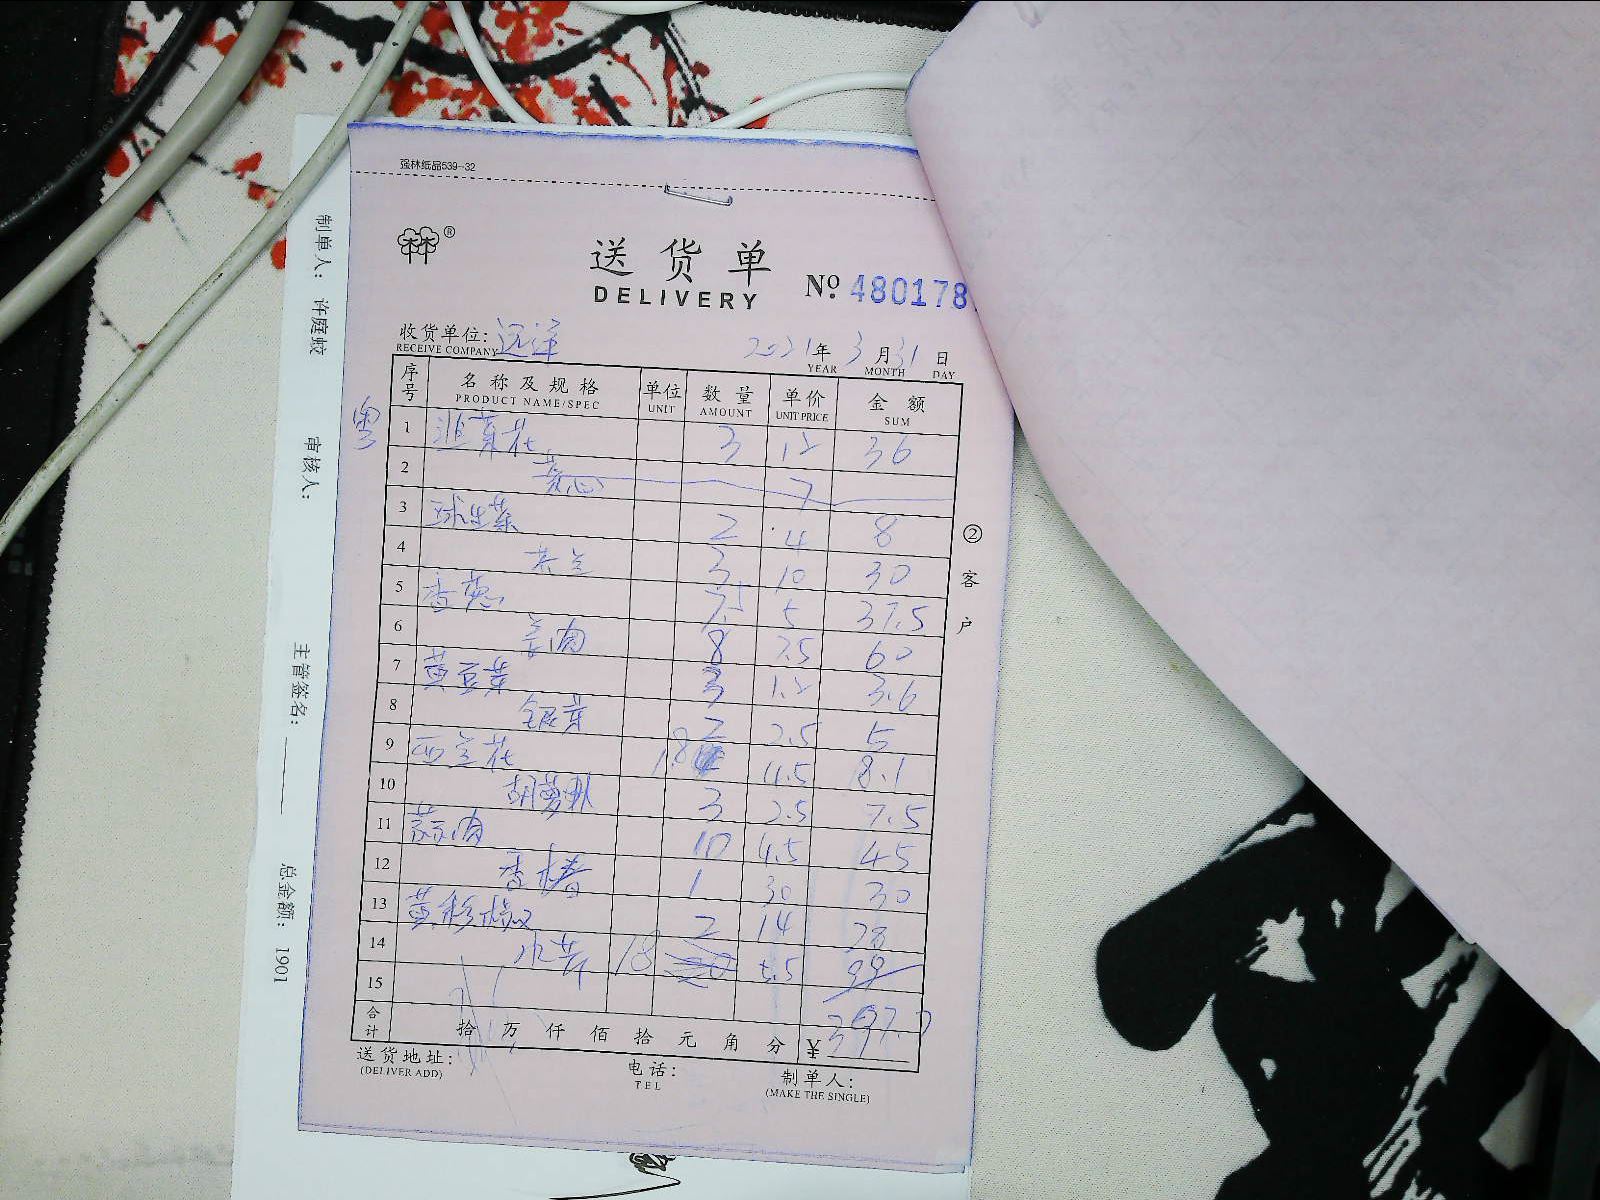 强林纸品539-32
®
送货单
DELIVERY
No 480178
收货单位: 远洋
RECEIVE COMPANY
2021年3月31日
YEAR MONTH DAY
序号 名称及规格 单位 数量 单价 金额
PRODUCT NAME/SPEC UNIT AMOUNT UNIT PRICE SUM
粤
1 韭菜花 3 12 36
2 菜心 7
3 球生菜 2 4 8
4 芥兰 3 10 30
5 香葱 7.5 5 37.5
6 姜肉 8 7.5 60
7 黄豆芽 3 1.2 3.6
8 银芽 2 2.5 5
9 西兰花 1.8 4.5 8.1
10 胡萝卜 3 2.5 7.5
11 蒜肉 10 4.5 45
12 香椿 1 30 30
13 黄彩椒 2 14 28
14 水芹 18 5.5 99
15
合计 拾万仟佰拾元角分 ¥ 397.7
送货地址:
(DELIVER ADD)
电话:
TEL
制单人:
(MAKE THE SINGLE)
②客户
制单人: 许庭蛟
审核人:
主管签名:
总金额: 1901